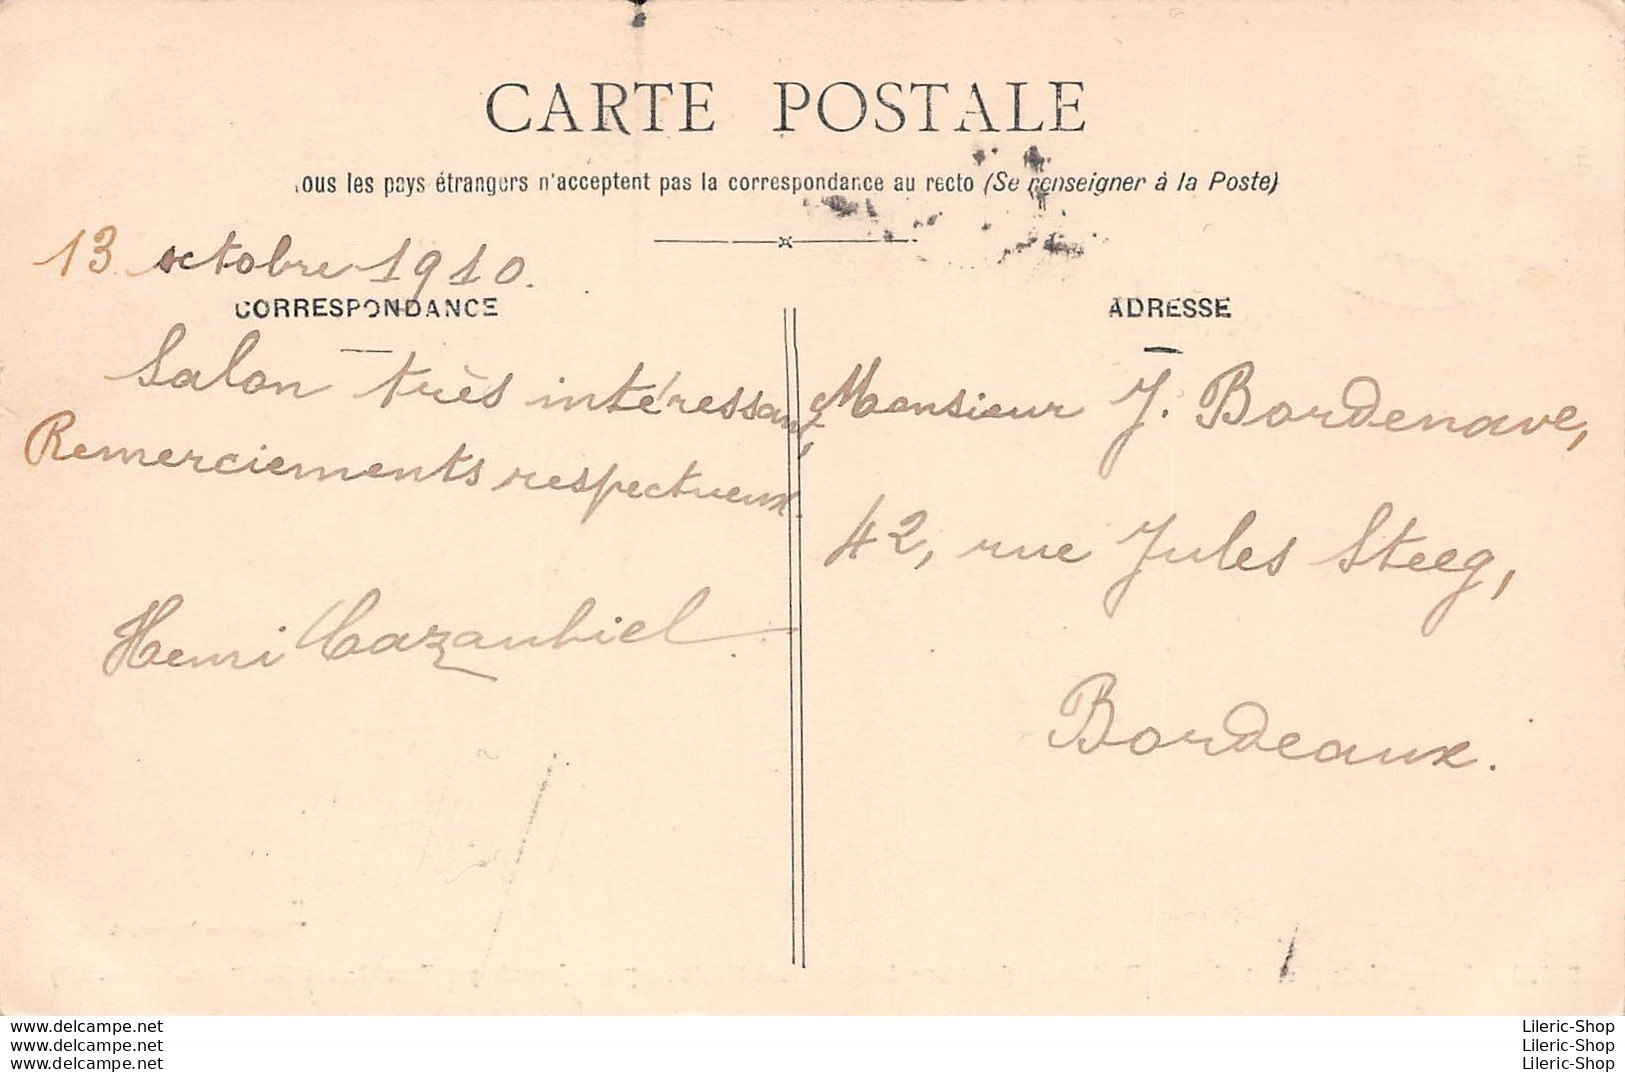 CARTE POSTALE
ous les pays étrangers n'acceptent pas la correspondance au recto (Se renseigner à la Poste)
13 octobre 1910.
CORRESPONDANCE
Salon très intéressant,
Remerciements respectueux.
Henri
ADRESSE
Monsieur J. Bordenave,
42, rue Jules Steeg,
Bordeaux.
www.delcampe.net
www.delcampe.net
www.delcampe.net
Lileric-Shop
Lileric-Shop
Lileric-Shop